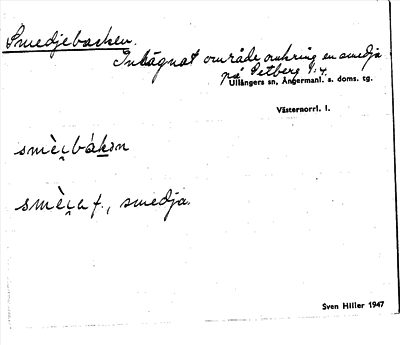 Smedjebacken.
Inhägnat område omkring en smedja
på Petberg 1:4.
Ullångers sn, Ångermanl. s. doms. tg.
Västernorrl. l.
smèi̯bákən
smèi̯a f., smedja.
Sven Hiller 1947